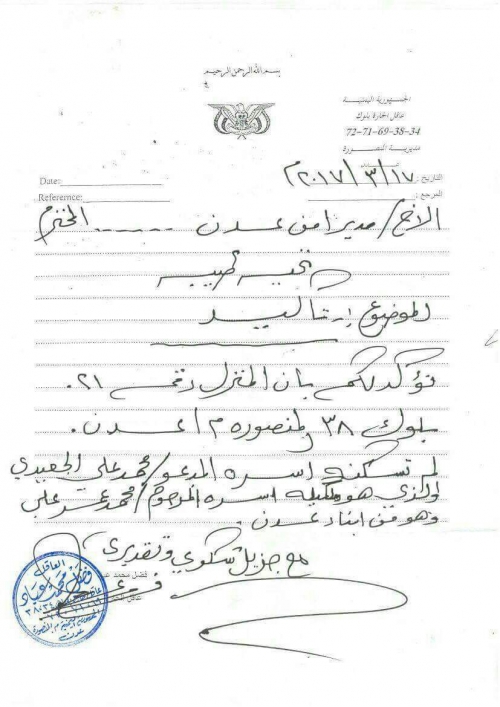 بسم الله الرحمن الرحيم
الجمهورية اليمنية
عاقل الحارة بلوك
72-71-69-38-34
مديرية المنصورة
Date:
التاريخ: ٢٠١٧/٣/١٧م
Reference:
المرجع:
الأخ/ مدير امن عدن ...... المحترم
تحيه طيبه
الموضوع/
نؤكد لكم بان المنزل رقم ٢١.
بلوك ٣٨ المنصوره م/ عدن.
لم تسكنه اسره المدعو/ محمد علي الجعيدي
والذي هو ملكيه اسره المرحوم/ محمد علي
وهو من ابناء عدن.
مع جزيل شكري وتقديري
فضل محمد
العاقل
عدن